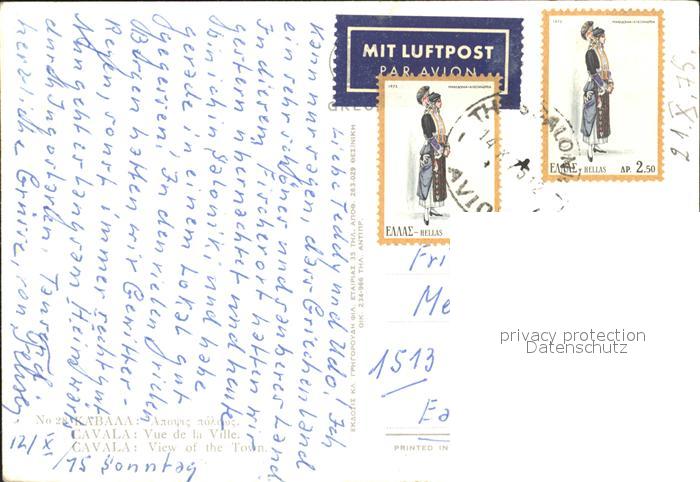 Liebe Teddy und Udo! Ich
kann nur sagen, dass Griechenland
ein sehr schönes und sauberes Land
In diesem Fischerort hatten wir
gestern übernachtet und heute
bin ich in Saloniki, und habe
gerade in einem Lokal gut
gegessen. In den vielen
Bergen hatten wir Gewitter-
Regen, sonst immer recht gut
Nun geht es langsam Heimwärts
durch Jugoslavien,
herzliche Grüsse, von
12/XI
/75 Sonntag
No 28 ΚΑΒΑΛΑ: Άποψις πόλεως.
CAVALA: Vue de la Ville.
CAVALA: View of the Town.
ΕΚΔΟΣΙΣ ΚΛ. ΓΡΗΓΟΡΟΥΔΗ ΦΙΛ. ΕΤΑΙΡΙΑΣ 35 ΤΗΛ. ΑΠΟΘ. 263-029 ΘΕΣ/ΝΙΚΗ
ΟΙΚ. 234-966 ΤΗΛ. ΑΝΤΙΠΡ.
MIT LUFTPOST
PAR AVION
1973
ΕΛΛΑΣ-HELLAS
1973
ΕΛΛΑΣ-HELLAS ΔΡ. 2.50
14 X
AVIO
Fri
Me
1513
PRINTED IN
privacy protection
Datenschutz